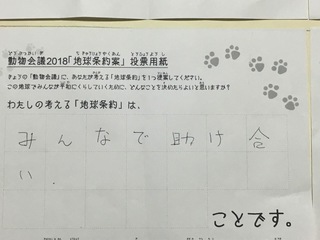 動物会議2018「地球条約案」投票用紙
きょうの「動物会議」に、あなたが考える「地球条約」を1つ提案してください。
この地球でみんなが平和にくらしていくために、どんなことを決めたらよいと思いますか?
わたしの考える「地球条約」は、
みんなで助け合
い.
ことです。